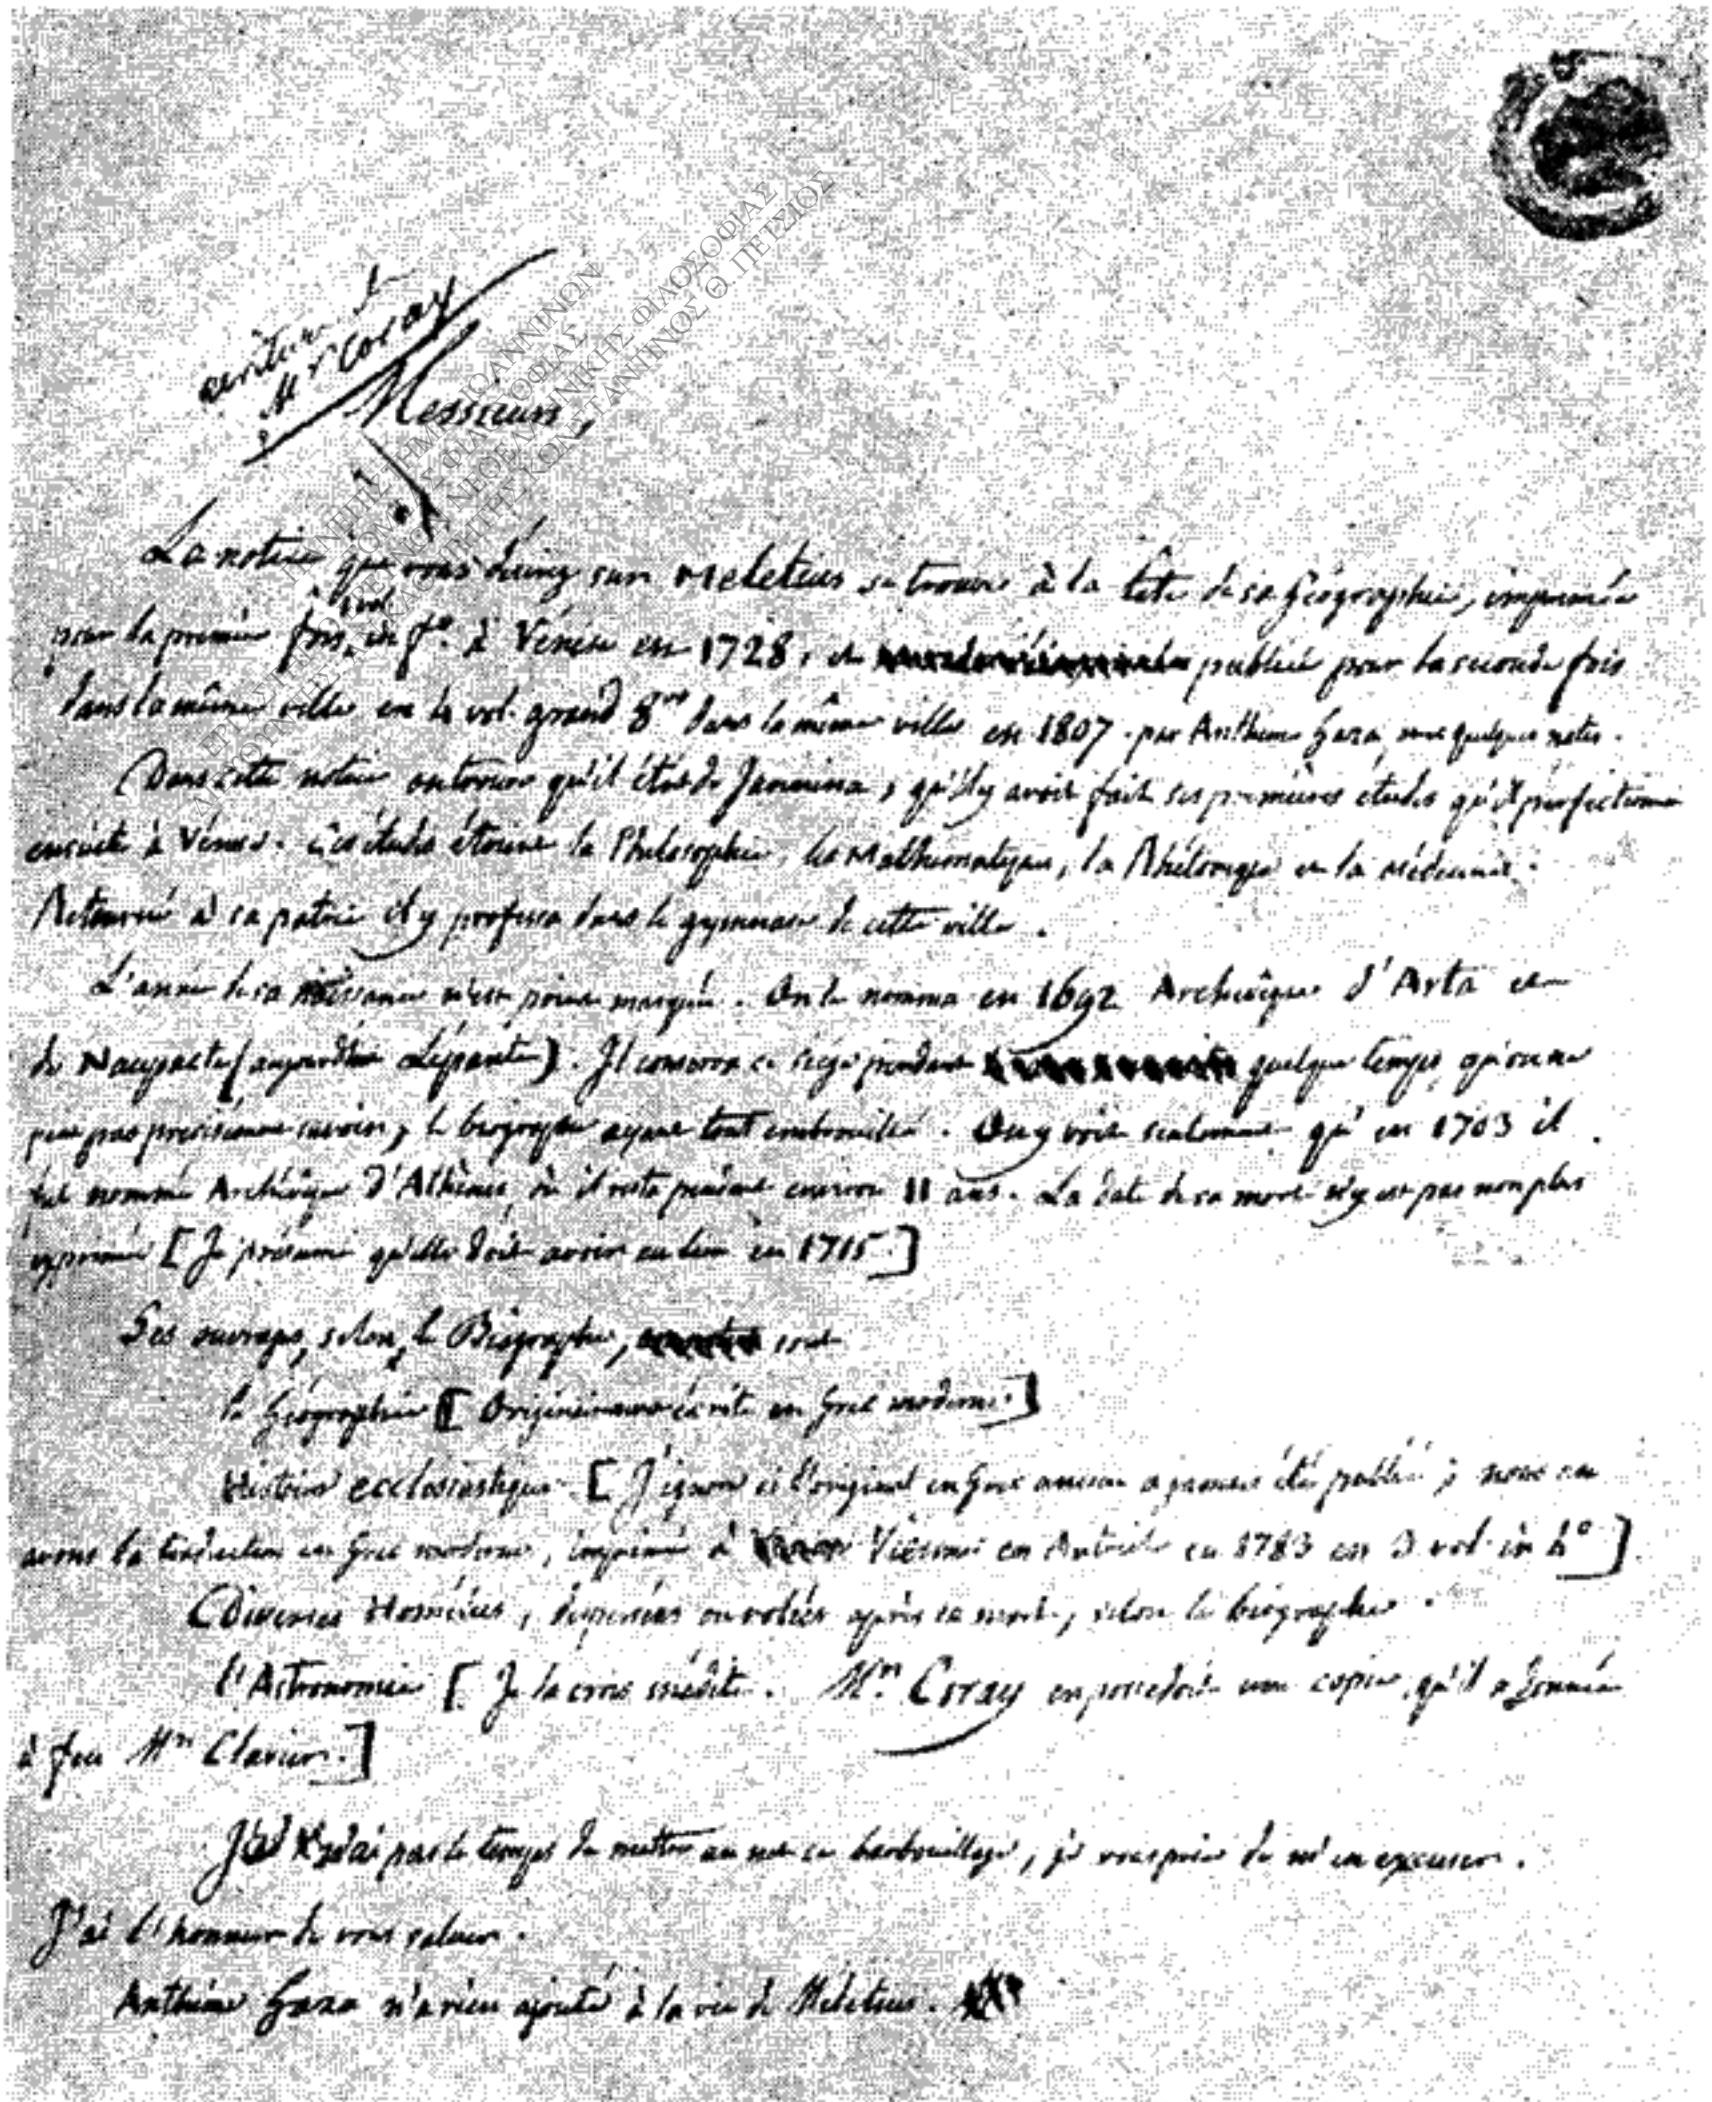 écriture de
Mr Coray
Messieurs,
La notice que vous désirez sur Meletius se trouve à la tête de sa Géographie, imprimée
pour la première fois, 1 vol. in fo. à Venise en 1728, et publiée pour la seconde fois
dans la même ville en 4 vol. grand 8vo dans la même ville en 1807. par Anthime Gaza, avec quelques notes.
Dans cette notice on trouve qu'il étoit de Jannina, qu'il y avoit fait ses premières études qu'il perfectionna
ensuite à Venise. Ces études étoient la Philosophie, les Mathématiques, la Rhétorique et la Médecine.
Retourné à sa patrie il y professa dans le gymnase de cette ville.
L'année de sa naissance n'est point marquée. On le nomma en 1692 Archevêque d'Arta et
de Naupacte (aujourd'hui Lépante). Il conserva ce siège pendant quelque temps, qu'on ne
peut pas précisément savoir, le biographe ayant tout embrouillé. On y voit seulement qu'en 1703 il
fut nommé Archevêque d'Athènes, où il resta pendant environ 11 ans. La date de sa mort n'y est pas non plus
exprimée [Je présume qu'elle doit avoir eu lieu en 1715.]
Ses ouvrages, selon le Biographe, sont
la Géographie [Originairement écrite en Grec moderne.]
Histoire ecclésiastique [J'ignore si l'original en Grec ancien a jamais été publié; nous en
avons la traduction en Grec moderne, imprimée à Vienne en Autriche en 1783 en 3 vol. in 4o].
Diverses Homélies, dispersées ou volées après sa mort, selon le biographe.
l'Astronomie [Je la crois inédite. Mr. Coray en possédoit une copie, qu'il a donnée
à feu Mr Clavier.]
pas le temps de mettre au net ce barbouillage, je vous prie de m'en excuser.
J'ai l'honneur de vous saluer.
Anthime Gaza n'a rien ajouté à la vie de Meletius.